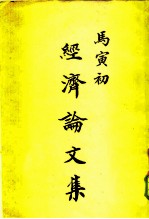 馬寅初
經濟論文集